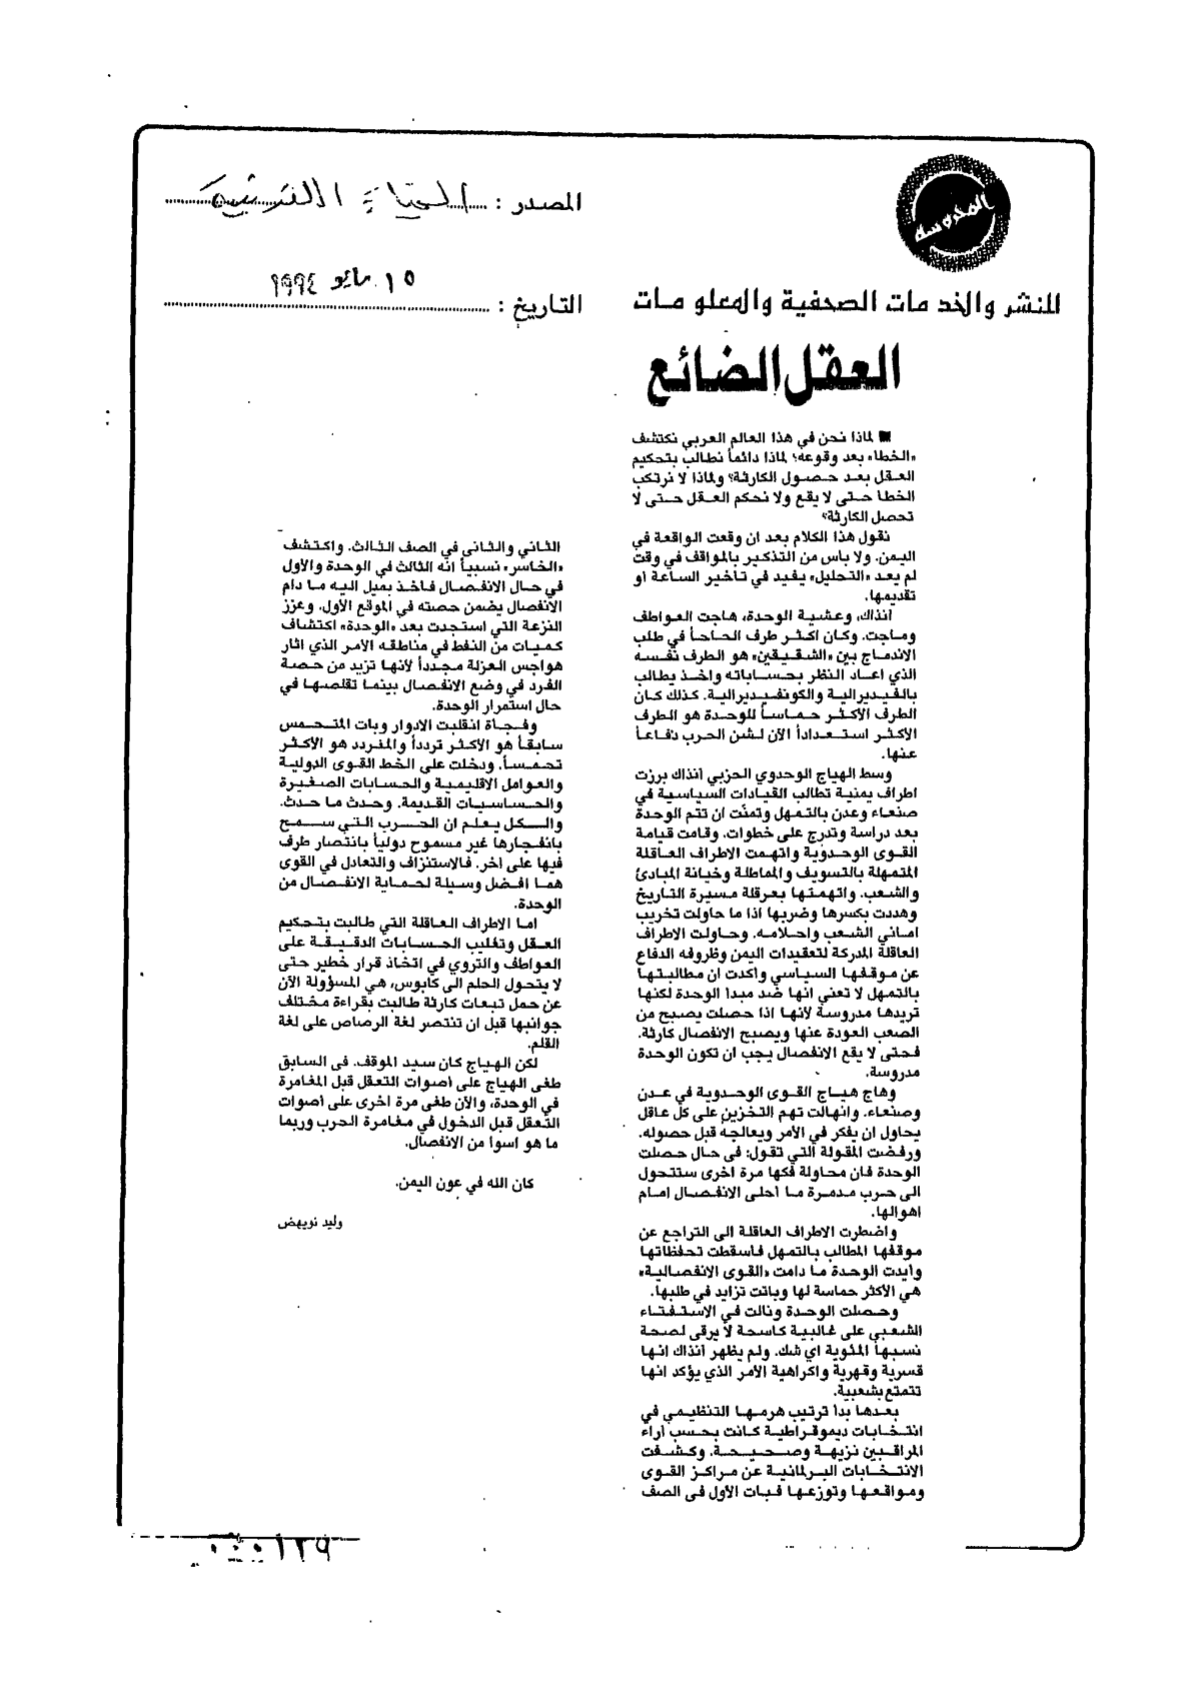 المحروسة
للنشر والخدمات الصحفية والمعلومات
المصدر :
التاريخ : ١٥ مايو ١٩٩٤
العقل الضائع
لماذا نحن في هذا العالم العربي نكتشف
«الخطأ» بعد وقوعه؟ لماذا دائماً نطالب بتحكيم
العقل بعد حصول الكارثة؟ ولماذا لا نرتكب
الخطأ حتى لا يقع ولا نحكم العقل حتى لا
تحصل الكارثة؟
نقول هذا الكلام بعد ان وقعت الواقعة في
اليمن. ولا بأس من التذكير بالمواقف في وقت
لم يعد «التحليل» يفيد في تأخير الساعة او
تقديمها.
آنذاك، وعشية الوحدة، هاجت العواطف
وماجت. وكان اكثر طرف الحاحاً في طلب
الاندماج بين «الشقيقين» هو الطرف نفسه
الذي اعاد النظر بحساباته واخذ يطالب
بالفيديرالية والكونفيديرالية. كذلك كان
الطرف الأكثر حماساً للوحدة هو الطرف
الأكثر استعداداً الآن لشن الحرب دفاعاً
عنها.
وسط الهياج الوحدوي الحزبي آنذاك برزت
اطراف يمنية تطالب القيادات السياسية في
صنعاء وعدن بالتمهل وتمنّت ان تتم الوحدة
بعد دراسة وتدرج على خطوات. وقامت قيامة
القوى الوحدوية واتهمت الاطراف العاقلة
المتمهلة بالتسويف والمماطلة وخيانة المبادئ
والشعب. واتهمتها بعرقلة مسيرة التاريخ
وهددت بكسرها وضربها اذا ما حاولت تخريب
اماني الشعب واحلامه. وحاولت الاطراف
العاقلة المدركة لتعقيدات اليمن وظروفه الدفاع
عن موقفها السياسي واكدت ان مطالبتها
بالتمهل لا تعني انها ضد مبدأ الوحدة لكنها
تريدها مدروسة لأنها اذا حصلت يصبح من
الصعب العودة عنها ويصبح الانفصال كارثة.
فحتى لا يقع الانفصال يجب ان تكون الوحدة
مدروسة.
وهاج هياج القوى الوحدوية في عدن
وصنعاء. وانهالت تهم التخزين على كل عاقل
يحاول ان يفكر في الأمر ويعالجه قبل حصوله.
ورفضت المقولة التي تقول: في حال حصلت
الوحدة فان محاولة فكها مرة اخرى ستتحول
الى حرب مدمرة ما احلى الانفصال امام
اهوالها.
واضطرت الاطراف العاقلة الى التراجع عن
موقفها المطالب بالتمهل فأسقطت تحفظاتها
وايدت الوحدة ما دامت «القوى الانفصالية»
هي الأكثر حماسة لها وباتت تزايد في طلبها.
وحصلت الوحدة ونالت في الاستفتاء
الشعبي على غالبية كاسحة لا يرقى لصحة
نسبها المئوية اي شك. ولم يظهر آنذاك انها
قسرية وقهرية واكراهية الأمر الذي يؤكد انها
تتمتع بشعبية.
بعدها بدأ ترتيب هرمها التنظيمي في
انتخابات ديموقراطية كانت بحسب آراء
المراقبين نزيهة وصحيحة. وكشفت
الانتخابات البرلمانية عن مراكز القوى
ومواقعها وتوزعها فبات الأول في الصف
الثاني والثاني في الصف الثالث. واكتشف
«الخاسر» نسبياً انه الثالث في الوحدة والأول
في حال الانفصال فأخذ يميل اليه ما دام
الانفصال يضمن حصته في الموقع الأول. وعزز
النزعة التي استجدت بعد «الوحدة» اكتشاف
كميات من النفط في مناطقه الأمر الذي اثار
هواجس العزلة مجدداً لأنها تزيد من حصة
الفرد في وضع الانفصال بينما تقلصها في
حال استمرار الوحدة.
وفجأة انقلبت الادوار وبات المتحمس
سابقاً هو الأكثر تردداً والمتردد هو الأكثر
تحمساً. ودخلت على الخط القوى الدولية
والعوامل الاقليمية والحسابات الصغيرة
والحساسيات القديمة. وحدث ما حدث.
والكل يعلم ان الحرب التي سمح
بانفجارها غير مسموح دولياً بانتصار طرف
فيها على آخر. فالاستنزاف والتعادل في القوى
هما افضل وسيلة لحماية الانفصال من
الوحدة.
اما الاطراف العاقلة التي طالبت بتحكيم
العقل وتغليب الحسابات الدقيقة على
العواطف والتروي في اتخاذ قرار خطير حتى
لا يتحول الحلم الى كابوس، هي المسؤولة الآن
عن حمل تبعات كارثة طالبت بقراءة مختلف
جوانبها قبل ان تنتصر لغة الرصاص على لغة
القلم.
لكن الهياج كان سيد الموقف. في السابق
طغى الهياج على اصوات التعقل قبل المغامرة
في الوحدة، والآن طغى مرة اخرى على اصوات
التعقل قبل الدخول في مغامرة الحرب وربما
ما هو اسوأ من الانفصال.
كان الله في عون اليمن.
وليد نويهض
٠٠٠١٢٩